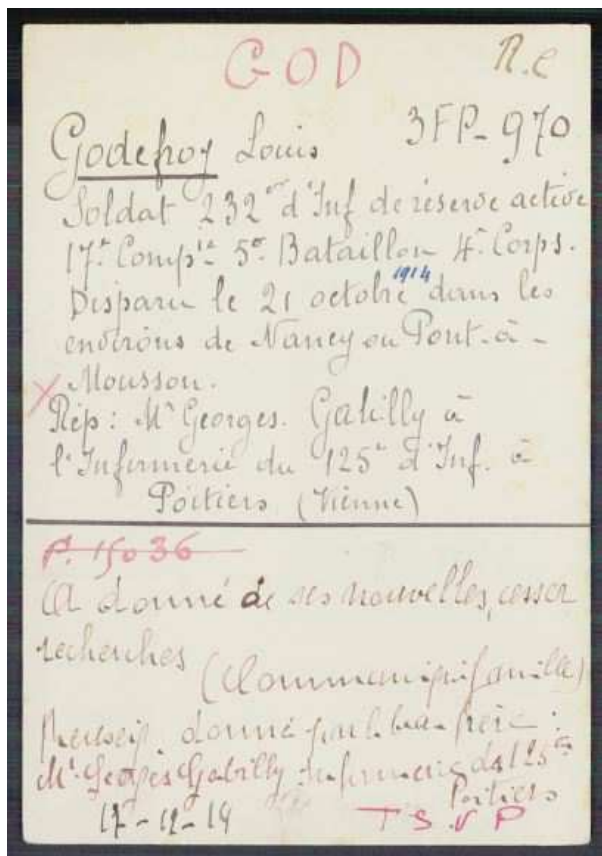 GOD R.C
Godefroy Louis 3FP-970
Soldat 232e d'Inf de réserve active
17e Compie 5e Bataillon 4e Corps.
Disparu le 21 octobre 1914 dans les
environs de Nancy ou Pont-à-
Mousson.
X Rép: Mr Georges. Gabilly à
l'Infirmerie du 125e d'Inf. à
Poitiers (Vienne)
P. 15036
A donné de ses nouvelles, cesser
recherches
(Communiqué famille)
Renseig. donné par le beau-frère:
Mr Georges Gabilly infirmerie du 125e
Poitiers
17-12-14 T S V P